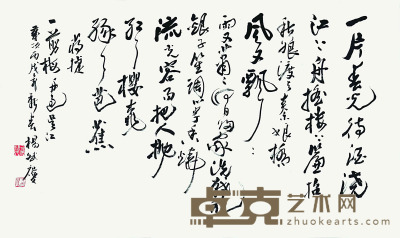 一片春光待酒浇
江上舟摇楼上帘招
秋娘渡与泰娘桥
风又飘飘
雨又萧萧何日归家洗客袍
银字笙调心字香烧
流光容易把人抛
红了樱桃
绿了芭蕉
蒋捷
一剪梅 舟过吴江
岁次丙戌年新春
卓克艺术网
zhuokearts.com